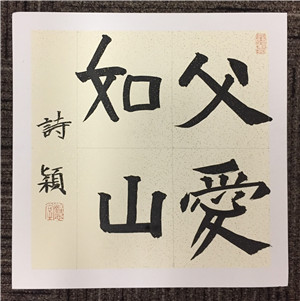 父愛
如山
詩穎